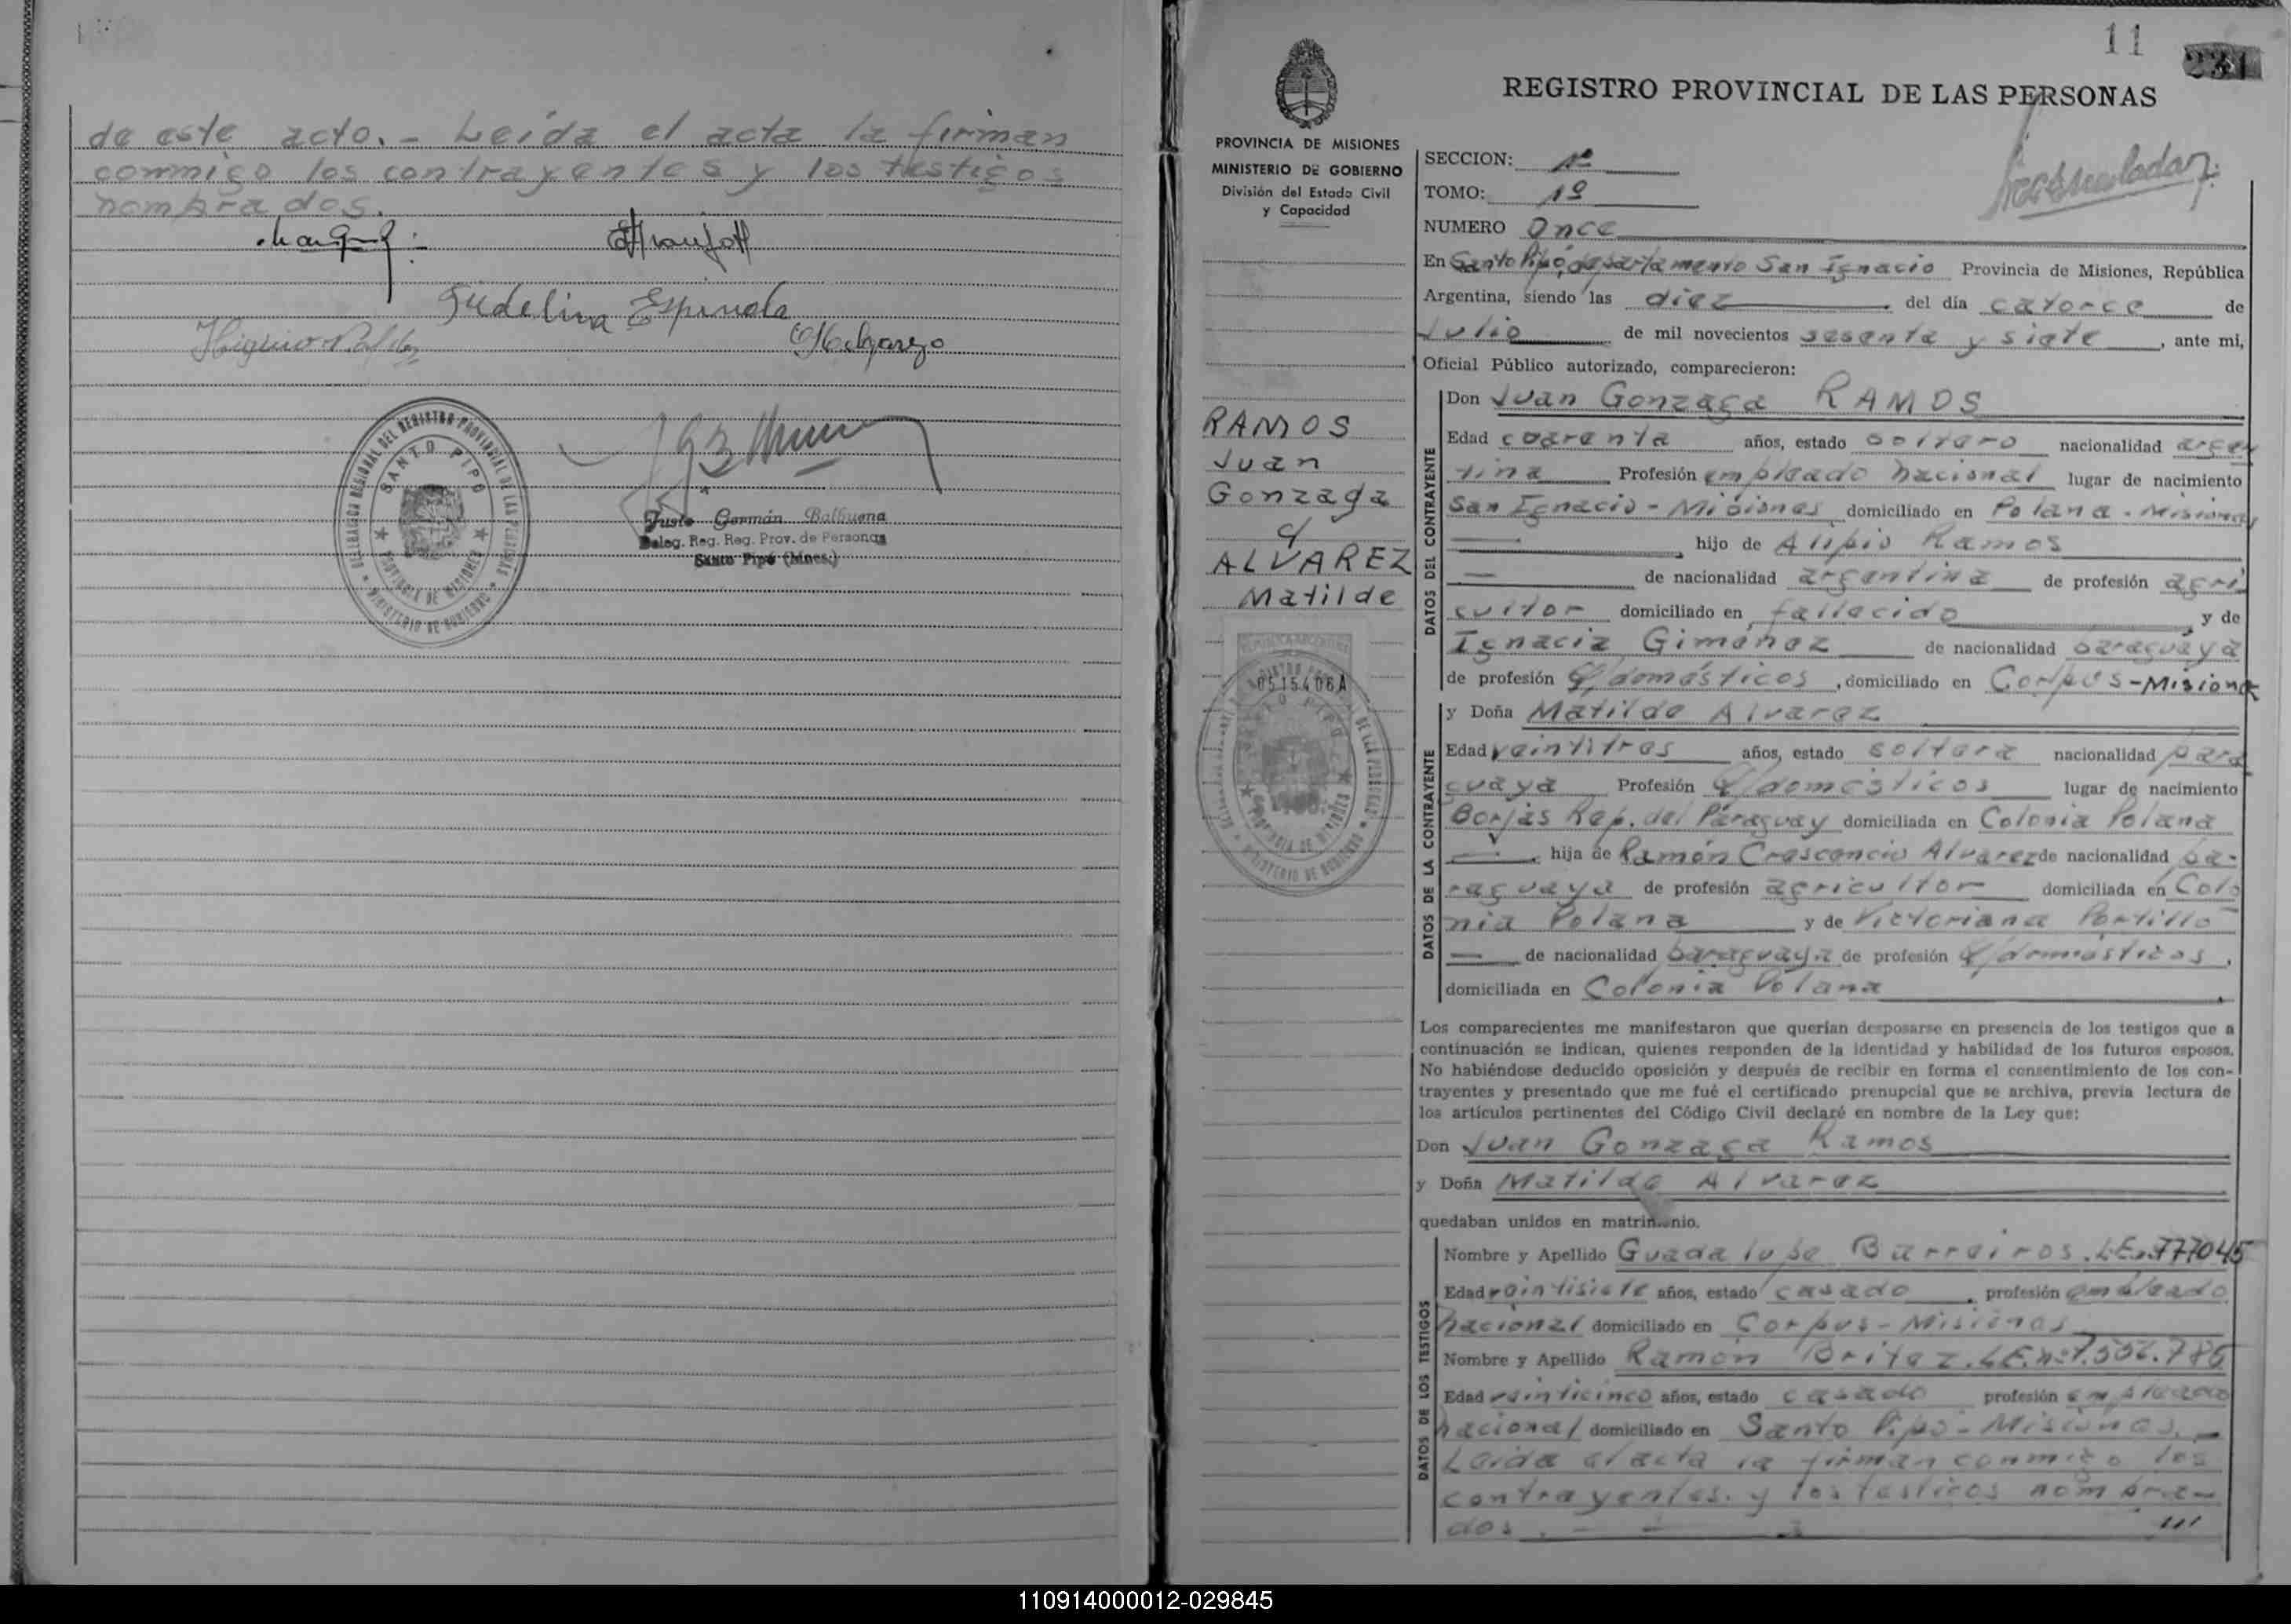 de este acto.- Leida el acta la firman
conmigo los contrayentes y los testigos
nombrados.
Fidelina Espinola
Melgarejo
DELEGACION REGIONAL DEL REGISTRO PROVINCIAL DE LAS PERSONAS
SANTO PIPO
PROVINCIA DE MISIONES
MINISTERIO DE GOBIERNO
Justo Germán Balbuena
Deleg. Reg. Reg. Prov. de Personas
Santo Pipó (Mnes.)
11
231
REGISTRO PROVINCIAL DE LAS PERSONAS
PROVINCIA DE MISIONES
MINISTERIO DE GOBIERNO
División del Estado Civil
y Capacidad
RAMOS
Juan
Gonzaga
y
ALVAREZ
Matilde
0515406A
SECCION: 1ª
TOMO: 1º
NUMERO Once
En Santo Pipó, departamento San Ignacio Provincia de Misiones, República
Argentina, siendo las diez del día catorce de
Julio de mil novecientos sesenta y siete, ante mi,
Oficial Público autorizado, comparecieron:
DATOS DEL CONTRAYENTE
Don Juan Gonzaga RAMOS
Edad coarenta años, estado soltero nacionalidad argen
tina Profesión empleado nacional lugar de nacimiento
San Ignacio - Misiones domiciliado en Polana - Misiones
hijo de Alipio Ramos
de nacionalidad argentina de profesión agri
cultor domiciliado en fallecido, y de
Ignacia Gimenez de nacionalidad paraguaya
de profesión q/domésticos, domiciliado en Corpus-Misiones
DATOS DE LA CONTRAYENTE
y Doña Matilde Alvarez
Edad veintitres años, estado soltera nacionalidad para
guaya Profesión q/domésticos lugar de nacimiento
Borjas Rep. del Paraguay domiciliada en Colonia Polana
hija de Ramón Crescencio Alvarez de nacionalidad pa-
raguaya de profesión agricultor domiciliada en Colo
nia Polana y de Victoriana Portillo
de nacionalidad paraguaya de profesión q/domésticos,
domiciliada en Colonia Polana
Los comparecientes me manifestaron que querían desposarse en presencia de los testigos que a
continuación se indican, quienes responden de la identidad y habilidad de los futuros esposos.
No habiéndose deducido oposición y después de recibir en forma el consentimiento de los con-
trayentes y presentado que me fué el certificado prenupcial que se archiva, previa lectura de
los artículos pertinentes del Código Civil declaré en nombre de la Ley que:
Don Juan Gonzaga Ramos
y Doña Matilde Alvarez
quedaban unidos en matrimonio.
DATOS DE LOS TESTIGOS
Nombre y Apellido Guadalupe Barreiros. L.E.
Edad veintisiete años, estado casado, profesión empleado
nacional domiciliado en Corpus - Misiones
Nombre y Apellido Ramón Britez. L.E.
Edad veinticinco años, estado casado profesión empleado
nacional domiciliado en Santo Pipó - Misiones.-
Leida el acta la firman conmigo los
contrayentes. y los testigos nombra-
dos.-
110914000012-029845